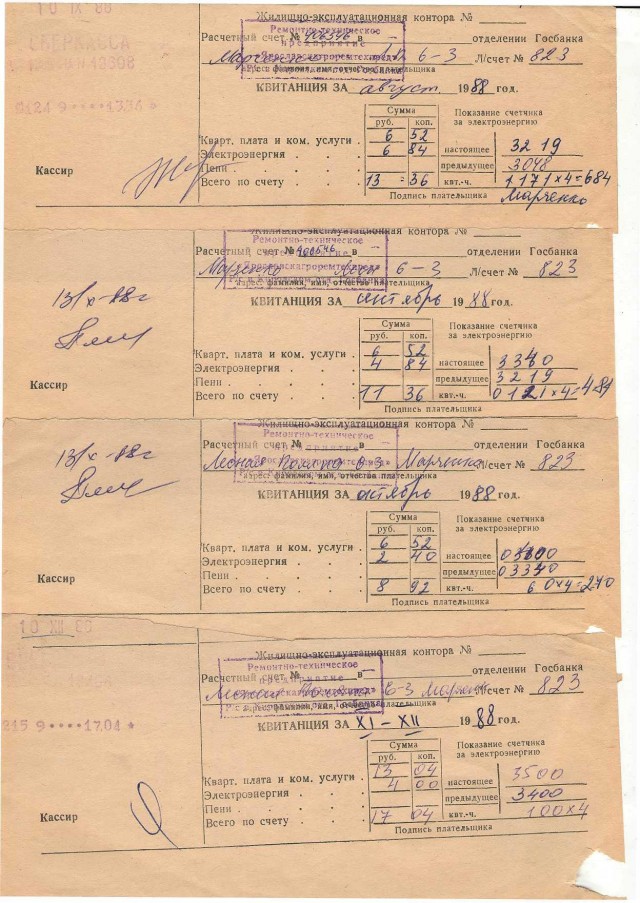 10 IX 88
СБЕРКАССА
Жилищно-эксплуатационная контора №
Ремонтно-техническое
предприятие
Расчетный счет № 400546 в отделении Госбанка
Марченко 6-3 Л/счет № 823
адрес, фамилия, имя, отчество плательщика
КВИТАНЦИЯ ЗА август 1988 год.
Сумма
руб. коп.
Показание счетчика за электроэнергию
Кварт. плата и ком. услуги 6 52
Электроэнергия 6 84 настоящее 3219
Пени предыдущее 3048
Всего по счету 13 = 36 квт.-ч. 171×4=684
Кассир
Подпись плательщика Марченко
Жилищно-эксплуатационная контора №
Ремонтно-техническое
предприятие
Расчетный счет № 400546 в отделении Госбанка
Марченко 6-3 Л/счет № 823
адрес, фамилия, имя, отчество плательщика
13/X-88г
КВИТАНЦИЯ ЗА сентябрь 1988 год.
Сумма
руб. коп.
Показание счетчика за электроэнергию
Кварт. плата и ком. услуги 6 52
Электроэнергия 4 84 настоящее 3340
Пени предыдущее 3219
Всего по счету 11 36 квт.-ч. 0121×4=484
Кассир
Подпись плательщика
Жилищно-эксплуатационная контора №
Ремонтно-техническое
предприятие
Расчетный счет № в отделении Госбанка
Лесная 6-3 Марченко Л/счет № 823
адрес, фамилия, имя, отчество плательщика
13/X-88г
КВИТАНЦИЯ ЗА октябрь 1988 год.
Сумма
руб. коп.
Показание счетчика за электроэнергию
Кварт. плата и ком. услуги 6 52
Электроэнергия 2 40 настоящее 03400
Пени предыдущее 03340
Всего по счету 8 92 квт.-ч. 60×4=240
Кассир
Подпись плательщика
10 XII 88
Жилищно-эксплуатационная контора №
Ремонтно-техническое
предприятие
Расчетный счет № в отделении Госбанка
Лесная 6-3 Марченко Л/счет № 823
адрес, фамилия, имя, отчество плательщика
215 9 ····17.04 *
КВИТАНЦИЯ ЗА XI-XII 1988 год.
Сумма
руб. коп.
Показание счетчика за электроэнергию
Кварт. плата и ком. услуги 13 04
Электроэнергия 4 00 настоящее 3500
Пени предыдущее 3400
Всего по счету 17 04 квт.-ч. 100×4
Кассир
Подпись плательщика